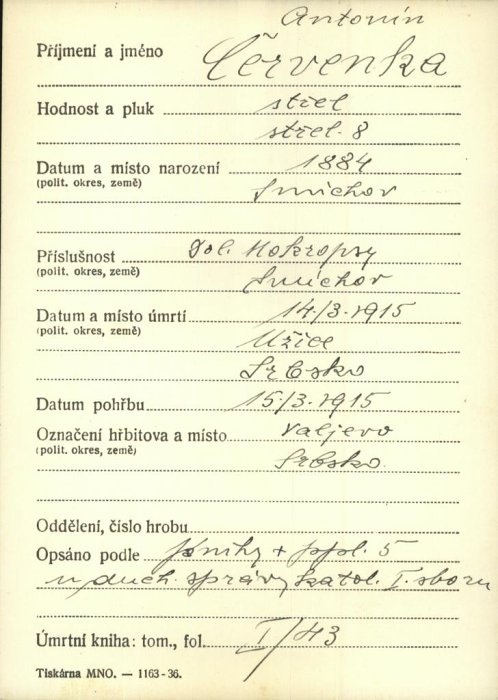 Antonín
Příjmení a jméno Červenka
Hodnost a pluk střel
střel. 8
Datum a místo narození 1884
(polit. okres, země) Smíchov
Příslušnost Dol. Mokropsy
(polit. okres, země) Smíchov
Datum a místo úmrtí 14/3.1915
(polit. okres, země) Užice
Srbsko
Datum pohřbu 15/3.1915
Označení hřbitova a místo Valjevo
(polit. okres, země) Srbsko
Oddělení, číslo hrobu
Opsáno podle knihy + 5
duch. správy katol. I. sboru
Úmrtní kniha: tom., fol. I/43
Tiskárna MNO. — 1163-36.